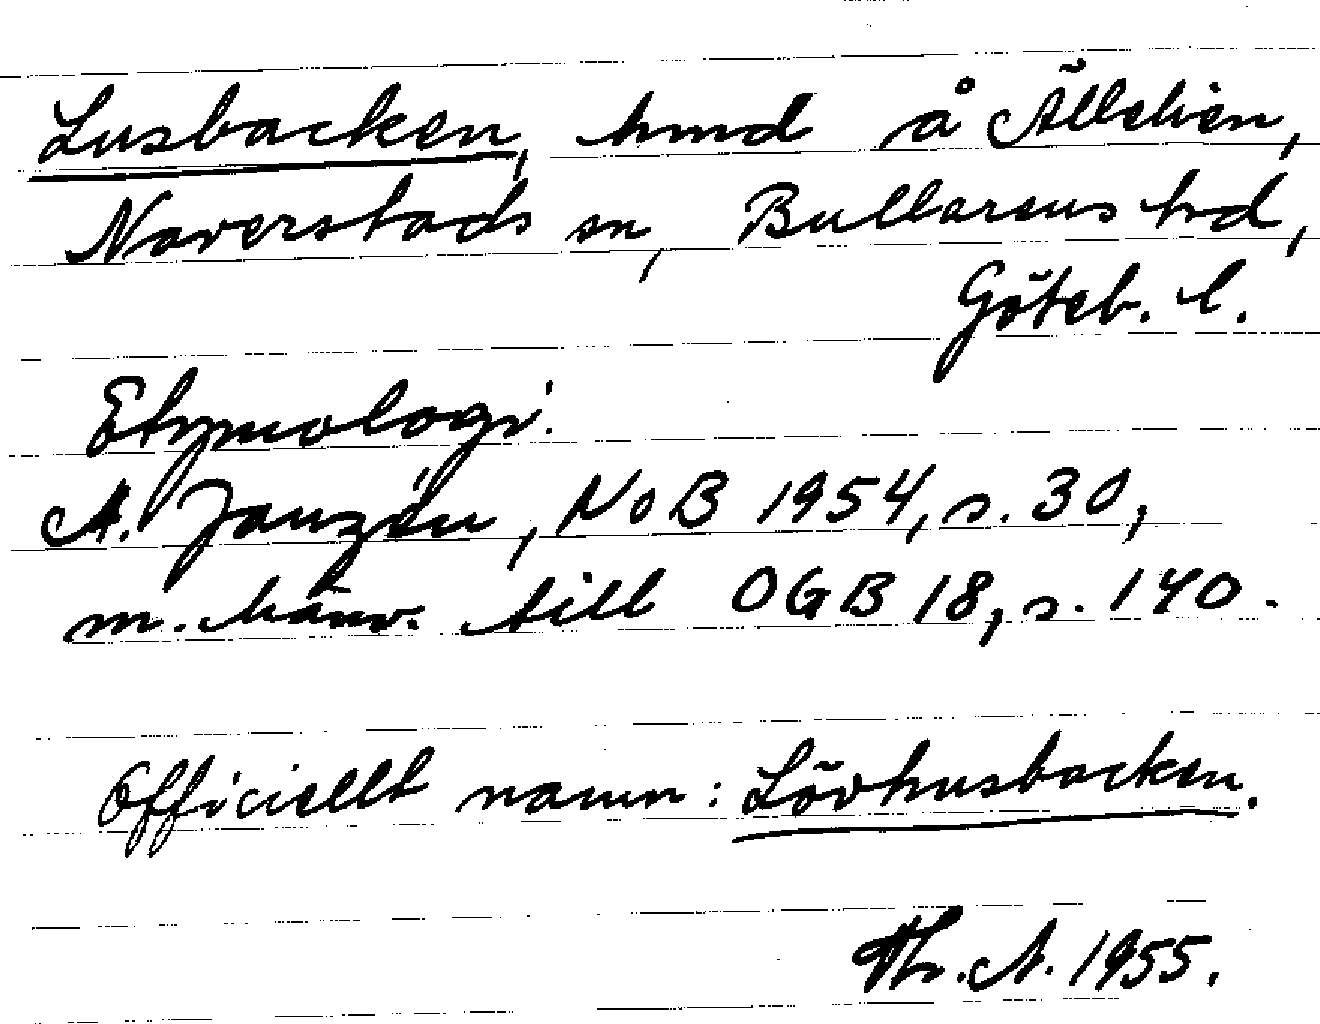 Lusbacken, hmd å Ällelién,
Naverstads sn, Bullarens hd,
Göteb. l.
Etymologi.
A. Janzén, NoB 1954, s. 30,
m. hänv. till OGB 18, s. 140.
Officiellt namn: Lövhusbacken.
Th. A. 1955.